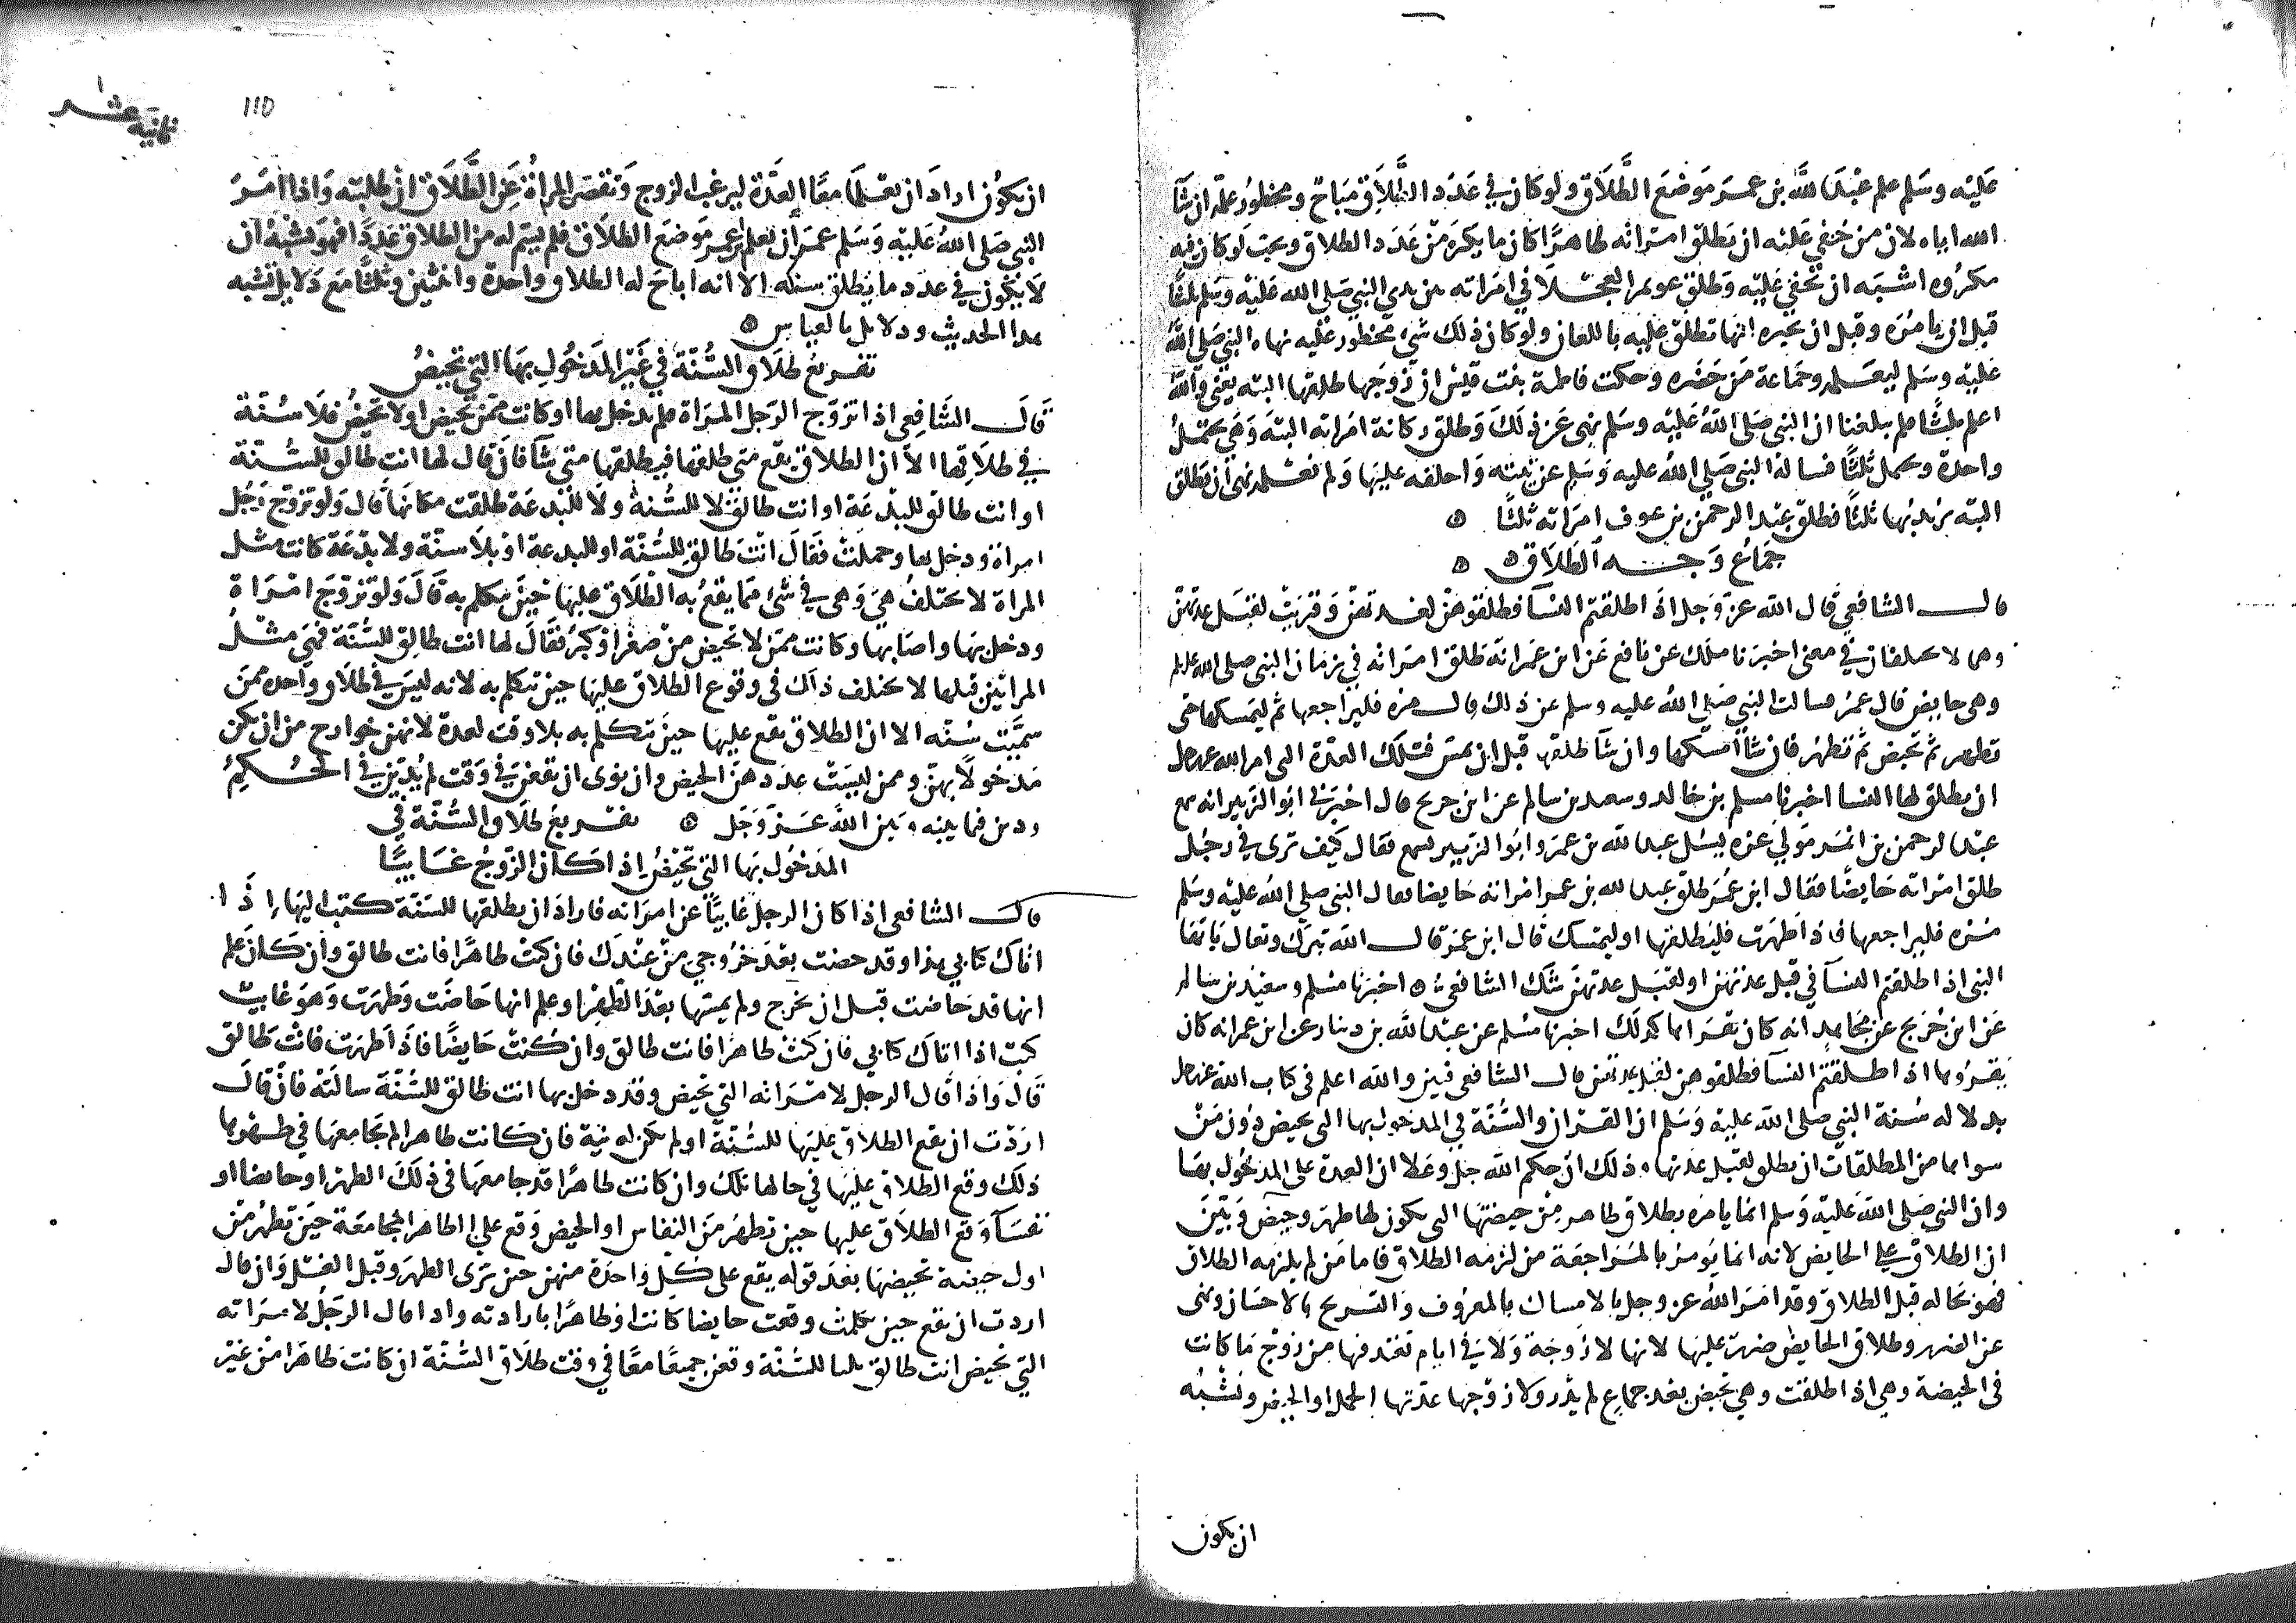 عليه وسلم علم عبد الله بن عمر موضع الطلاق ولو كان في عدد الطلاق مباح ومحظور علمه ان شا
الله اياه لان من خفي عليه ان يطلق امراته طاهرا كان ما يكره من عدد الطلاق ويحب لو كان فيه
مكروه اشبه ان يخفي عليه وطلق عويمر العجلاني امراته بين يدي النبي صلى الله عليه وسلم ثلثا
قبل ان يامره وقبل ان يخبره انها تطلق عليه باللعان ولو كان ذلك شي محظور عليه نهاه النبي صلى الله
عليه وسلم ليعلمه وجماعة من حضره وحكت فاطمة بنت قيس ان زوجها طلقها البته يعني والله
اعلم ثلثا فلم يبلغنا ان النبي صلى الله عليه وسلم نهى عن ذلك وطلق ركانة امراته البته وهي تحتمل
واحدة وتحتمل ثلثا فساله النبي صلى الله عليه وسلم عن نيته واحلفه عليها ولم نعلمه نهى ان يطلق
البته يريد بها ثلثا وطلق عبد الرحمن بن عوف امراته ثلثا
جماع وجه الطلاق
قال الشافعي قال الله عز وجل اذا طلقتم النسا فطلقوهن لعدتهن وقريت لقبل عدتهن
وهما لا يختلفان في معنى اخبرنا ملك عن نافع عن ابن عمر انه طلق امراته في زمان النبي صلى الله عليه وسلم
وهي حايض قال عمر فسالت النبي صلى الله عليه وسلم عن ذلك قال مره فليراجعها ثم ليمسكها حتى
تطهر ثم تحيض ثم تطهر فان شا امسكها وان شا طلقها قبل ان يمس فتلك العدة التي امر الله عز وجل
ان يطلق لها النسا اخبرنا مسلم بن خالد وسعيد بن سالم عن ابن جريج قال اخبرني ابو الزبير انه سمع
عبد الرحمن بن ايمن مولى عزه يسل عبد الله بن عمر وابو الزبير يسمع فقال كيف ترى في رجل
طلق امراته حايضا فقال ابن عمر طلق عبد الله بن عمر امراته حايضا فقال النبي صلى الله عليه وسلم
مره فليراجعها فاذا طهرت فليطلقها او ليمسك قال ابن عمر قال الله تبرك وتعال يا ايها
النبي اذا طلقتم النسا في قبل عدتهن او لقبل عدتهن شك الشافعي اخبرنا مسلم وسعيد بن سالم
عن ابن جريج عن مجاهد انه كان يقراها كذلك اخبرنا مسلم عن عبد الله بن دينار عن ابن عمر انه كان
يقروها اذا طلقتم النسا فطلقوهن لقبل عدتهن قال الشافعي فبين والله اعلم في كتاب الله عز وجل
بدلاله سنة النبي صلى الله عليه وسلم ان القران والسنة في المدخول بها التي تحيض دون من
سواها من المطلقات ان يطلق لقبل عدتها وذلك ان حكم الله جل وعلا ان العدة على المدخول بها
وان النبي صلى الله عليه وسلم انما يامره بطلاق طاهر من حيضتها التي يكون لها طهر وحيض وبين
ان الطلاق على الحايض لانه انما يومر بالمراجعة من لزمه الطلاق فاما من لم يلزمه الطلاق
فهو بحاله قبل الطلاق وقد امر الله عز وجل بالامساك بالمعروف والتسريح بالاحسان ونهى
عن الضرر وطلاق الحايض ضرر عليها لانها لا زوجة ولا في ايام تعتد فيها من زوج ما كانت
في الحيضة وهي اذا طلقت وهي تحيض بعد جماع لم يدر ولا زوجها عدتها الحمل او الحيض ويشبه
ان يكون
ثانية عشر
١١٥
ان يكون اراد ان يعلما معا العدة ليرغب الزوج وتقصر المراة عن الطلاق ان طلبته واذا امر
النبي صلى الله عليه وسلم عمر ان يعلم ابن عمر موضع الطلاق فلم يسم له من الطلاق عددا فهو يشبه ان
لا يكون في عدد ما يطلق سنه الا انه اباح له الطلاق واحدة واثنين وثلثا مع دلايل تشبه
هذا الحديث ودلايل بالقياس
تفريع طلاق السنة في غير المدخول بها التي تحيض
قال الشافعي اذا تزوج الرجل المراة فلم يدخل بها وكانت ممن تحيض او لا تحيض فلا سنة
في طلاقها الا ان الطلاق يقع متى طلقها فيطلقها متى شا فان قال لها انت طالق للسنة
او انت طالق للبدعة او انت طالق لا للسنة ولا للبدعة طلقت مكانها قال ولو تزوج رجل
امراة ودخل بها وحملت فقال انت طالق للسنة او للبدعة او بلا سنة ولا بدعة كانت مثل
المراة لا تختلف هي وهي في شي مما يقع به الطلاق عليها حين يتكلم به قال ولو تزوج امراة
ودخل بها واصابها وكانت ممن لا تحيض من صغر او كبر فقال لها انت طالق للسنة فهي مثل
المراتين قبلها لا يختلف ذلك في وقوع الطلاق عليها حين يتكلم به لانه ليس في طلاق واحده ممن
سميت سنه الا ان الطلاق يقع عليها حين يتكلم به بلا وقت لعدة لانهن خوارج من ان يكن
مدخولا بهن وممن ليست عددهن الحيض وان نوى ان يقعن في وقت لم يدين في الحكم
ودين فيما بينه وبين الله عز وجل تفريع طلاق السنة في
المدخول بها التي تحيض اذا كان الزوج غايبا
قال الشافعي اذا كان الرجل غايبا عن امراته فاراد ان يطلقها للسنة كتب اليها اذا
اتاك كتابي هذا وقد حضت بعد خروجي من عندك فان كنت طاهرا فانت طالق وان كان علم
انها قد حاضت قبل ان يخرج ولم يمسها بعد الطهر او علم انها حاضت وطهرت وهو غايب
كتب اذا اتاك كتابي فان كنت طاهرا فانت طالق وان كنت حايضا فاذا طهرت فانت طالق
قال واذا قال الرجل لامراته التي تحيض وقد دخل بها انت طالق للسنة سالته فان قال
اردت ان يقع الطلاق عليها للسنة او لم يكن له نية فان كانت طاهرا لم يجامعها في طهرها
ذلك وقع الطلاق عليها في حالها تلك وان كانت طاهرا قد جامعها في ذلك الطهر او حايضا او
نفسا وقع الطلاق عليها حين تطهر من النفاس او الحيض وقع على الطاهر المجامعة حين تطهر من
اول حيضة تحيضها بعد قوله يقع على كل واحدة منهن حين ترى الطهر وقبل الغسل وان قال
اردت ان يقع حين تكلمت وقعت حايضا كانت او طاهرا بارادته واذا قال الرجل لامراته
التي تحيض انت طالق ثلثا للسنة وقعن جميعا معا في وقت طلاق السنة ان كانت طاهرا من غير